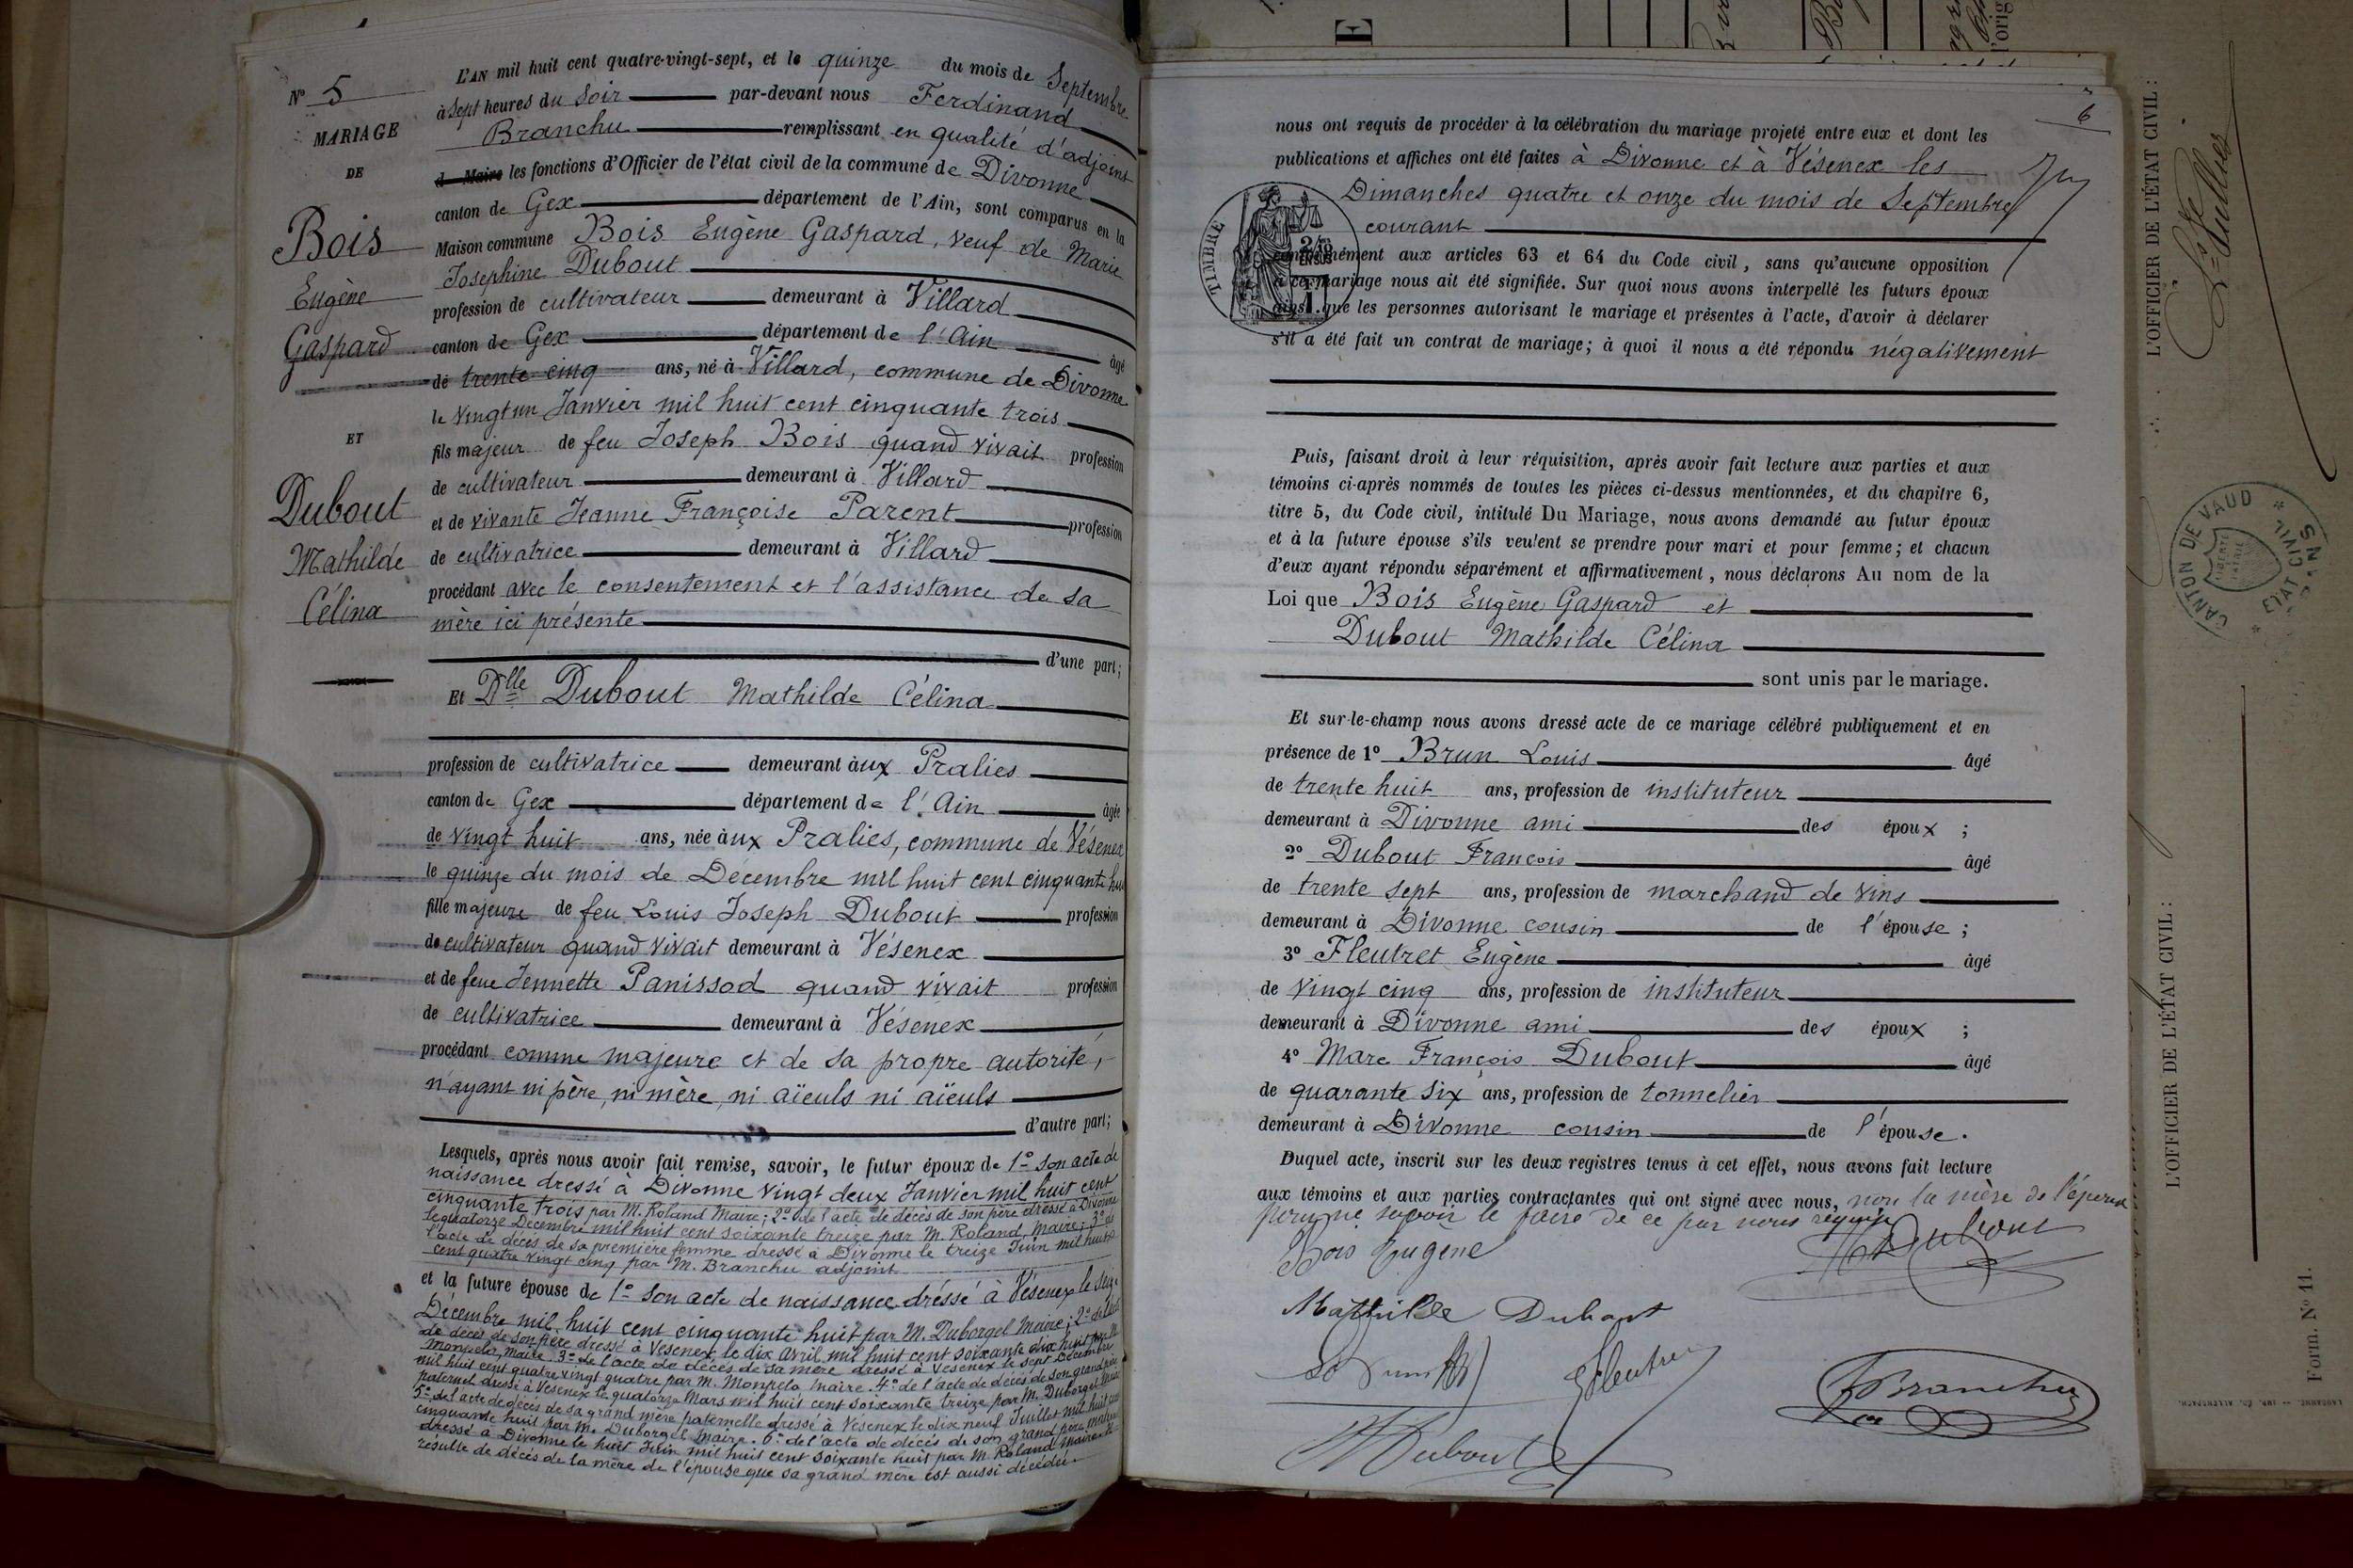 N° 5
MARIAGE
DE
Bois
Eugène
Gaspard
ET
Dubout
Mathilde
Célina
L'AN mil huit cent quatre-vingt-sept, et le quinze du mois de Septembre
à Sept heures du Soir par-devant nous Ferdinand
Branchu remplissant en qualité d'adjoint
d Maire les fonctions d'Officier de l'état civil de la commune de Divonne
canton de Gex département de l'Ain, sont comparus en la
Maison commune Bois Eugène Gaspard, veuf de Marie
Josephine Dubout
profession de cultivateur demeurant à Villard
canton de Gex département de l'Ain âgé
de trente cinq ans, né à Villard, commune de Divonne
le vingt un Janvier mil huit cent cinquante trois
fils majeur de feu Joseph Bois quand vivait profession
de cultivateur demeurant à Villard
et de vivante Jeanne Françoise Parent profession
de cultivatrice demeurant à Villard
procédant avec le consentement et l'assistance de sa
mère ici présente
d'une part;
Et Dlle Dubout Mathilde Célina
profession de cultivatrice demeurant àux Pralies
canton de Gex département de l'Ain âgée
de vingt huit ans, née àux Pralies, commune de Vésenex
le quinze du mois de Décembre mil huit cent cinquante hui
fille majeure de feu Louis Joseph Dubout profession
de cultivateur quand vivait demeurant à Vésenex
et de feue Jennette Panissod quand vivait profession
de cultivatrice demeurant à Vésenex
procédant comme majeure et de sa propre autorité,
n'ayant ni père, ni mère, ni aïeuls ni aïeuls
d'autre part;
Lesquels, après nous avoir fait remise, savoir, le futur époux de 1° son acte de
naissance dressé à Divonne vingt deux Janvier mil huit cent
cinquante trois par M. Roland Maire; 2° de l'acte de décès de son père dressé à Divonne
le quatorze Décembre mil huit cent soixante treize par M. Roland, Maire; 3° de
l'acte de décès de sa première femme dressé à Divonne le treize Juin mil huit
cent quatre vingt cinq par M. Branchu adjoint
et la future épouse de 1° son acte de naissance dréssé à Vésenex le seize
Décembre mil huit cent cinquante huit par M. Duborgel Maire; 2° de l'acte
de décès de son père dressé à Vésenex le dix avril mil huit cent soixante dix huit par M.
Monpela, Maire. 3° de l'acte de décès de sa mère dressé à Vésenex le sept Décembre
mil huit cent quatre vingt quatre par M. Monpela Maire. 4° de l'acte de décès de son grand père
paternel dressé à Vésenex le quatorze Mars mil huit cent soixante treize par M. Duborgel Maire
5° de l'acte de décès de sa grand mère paternelle dressé à Vésenex le dix neuf Juillet mil huit cent
cinquante huit par M. Duborgel Maire. 6° de l'acte de décès de son grand père maternel
dressé à Divonne le huit Juin mil huit cent soixante huit par M. Roland Maire. Il
résulte de décès de la mère de l'épouse que sa grand mère est aussi décédée
6
nous ont requis de procéder à la célébration du mariage projeté entre eux et dont les
publications et affiches ont été faites à Divonne et à Vésenex les
Dimanches quatre et onze du mois de Septembre
courant
TIMBRE
conformément aux articles 63 et 64 du Code civil, sans qu'aucune opposition
à ce mariage nous ait été signifiée. Sur quoi nous avons interpellé les futurs époux
ainsi que les personnes autorisant le mariage et présentes à l'acte, d'avoir à déclarer
s'il a été fait un contrat de mariage; à quoi il nous a été répondu négativement
Puis, faisant droit à leur réquisition, après avoir fait lecture aux parties et aux
témoins ci-après nommés de toutes les pièces ci-dessus mentionnées, et du chapitre 6,
titre 5, du Code civil, intitulé Du Mariage, nous avons demandé au futur époux
et à la future épouse s'ils veulent se prendre pour mari et pour femme; et chacun
d'eux ayant répondu séparément et affirmativement, nous déclarons Au nom de la
Loi que Bois Eugène Gaspard et
Dubout Mathilde Célina
sont unis par le mariage.
Et sur-le-champ nous avons dressé acte de ce mariage célébré publiquement et en
présence de 1° Brun Louis âgé
de trente huit ans, profession de instituteur
demeurant à Divonne ami des époux ;
2° Dubout François âgé
de trente sept ans, profession de marchand de vins
demeurant à Divonne cousin de l'épouse ;
3° Fleutret Eugène âgé
de vingt cinq ans, profession de instituteur
demeurant à Divonne ami des époux ;
4° Marc François Dubout âgé
de quarante six ans, profession de tonnelier
demeurant à Divonne cousin de l'épouse.
Duquel acte, inscrit sur les deux registres tenus à cet effet, nous avons fait lecture
aux témoins et aux parties contractantes qui ont signé avec nous, non la mère de l'époux
pour ne savoir le faire de ce par nous requise
Bois Eugène
Dubout
Mathilde Dubout
Fleutret
Branchu
Dubout
L'OFFICIER DE L'ÉTAT CIVIL :
CANTON DE VAUD
ETAT CIVIL
L'OFFICIER DE L'ÉTAT CIVIL :
Form. N° 11.